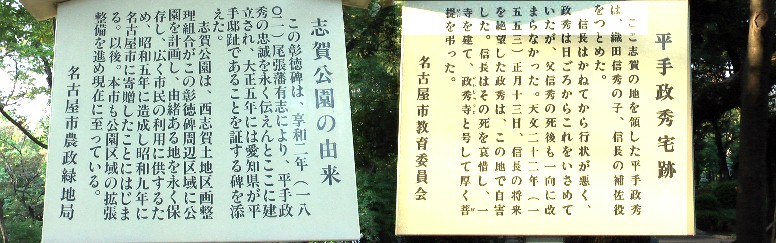 志賀公園の由来
この彰徳碑は、享和二年（一八
〇二）尾張藩有志により、平手政
秀の忠誠を永く伝えんとここに建
立され、大正五年には愛知県が平
手邸趾であることを証する碑を添
えた。
志賀公園は、西志賀土地区画整
理組合がこの彰徳碑周辺区域に公
園を計画し、由緒ある地を永く保
存し、広く市民の利用に供するた
め、昭和五年に造成し昭和九年に
名古屋市に寄贈したことにはじま
る。以後、本市も公園区域の拡張
整備を進め現在に至っている。
名古屋市農政緑地局
平手政秀宅跡
ここ志賀の地を領した平手政秀
は、織田信秀の子、信長の補佐役
をつとめた。
信長はかねてから行状が悪く、
政秀は日ごろからこれをいさめて
いたが、父信秀の死後も一向に改
まらなかった。天文二十二年（一
五五三）正月十三日、信長の将来
を絶望した政秀は、この地で自害
した。信長はその死を哀惜し、一
寺を建て、政秀寺と号して厚く菩
提を弔った。
名古屋市教育委員会